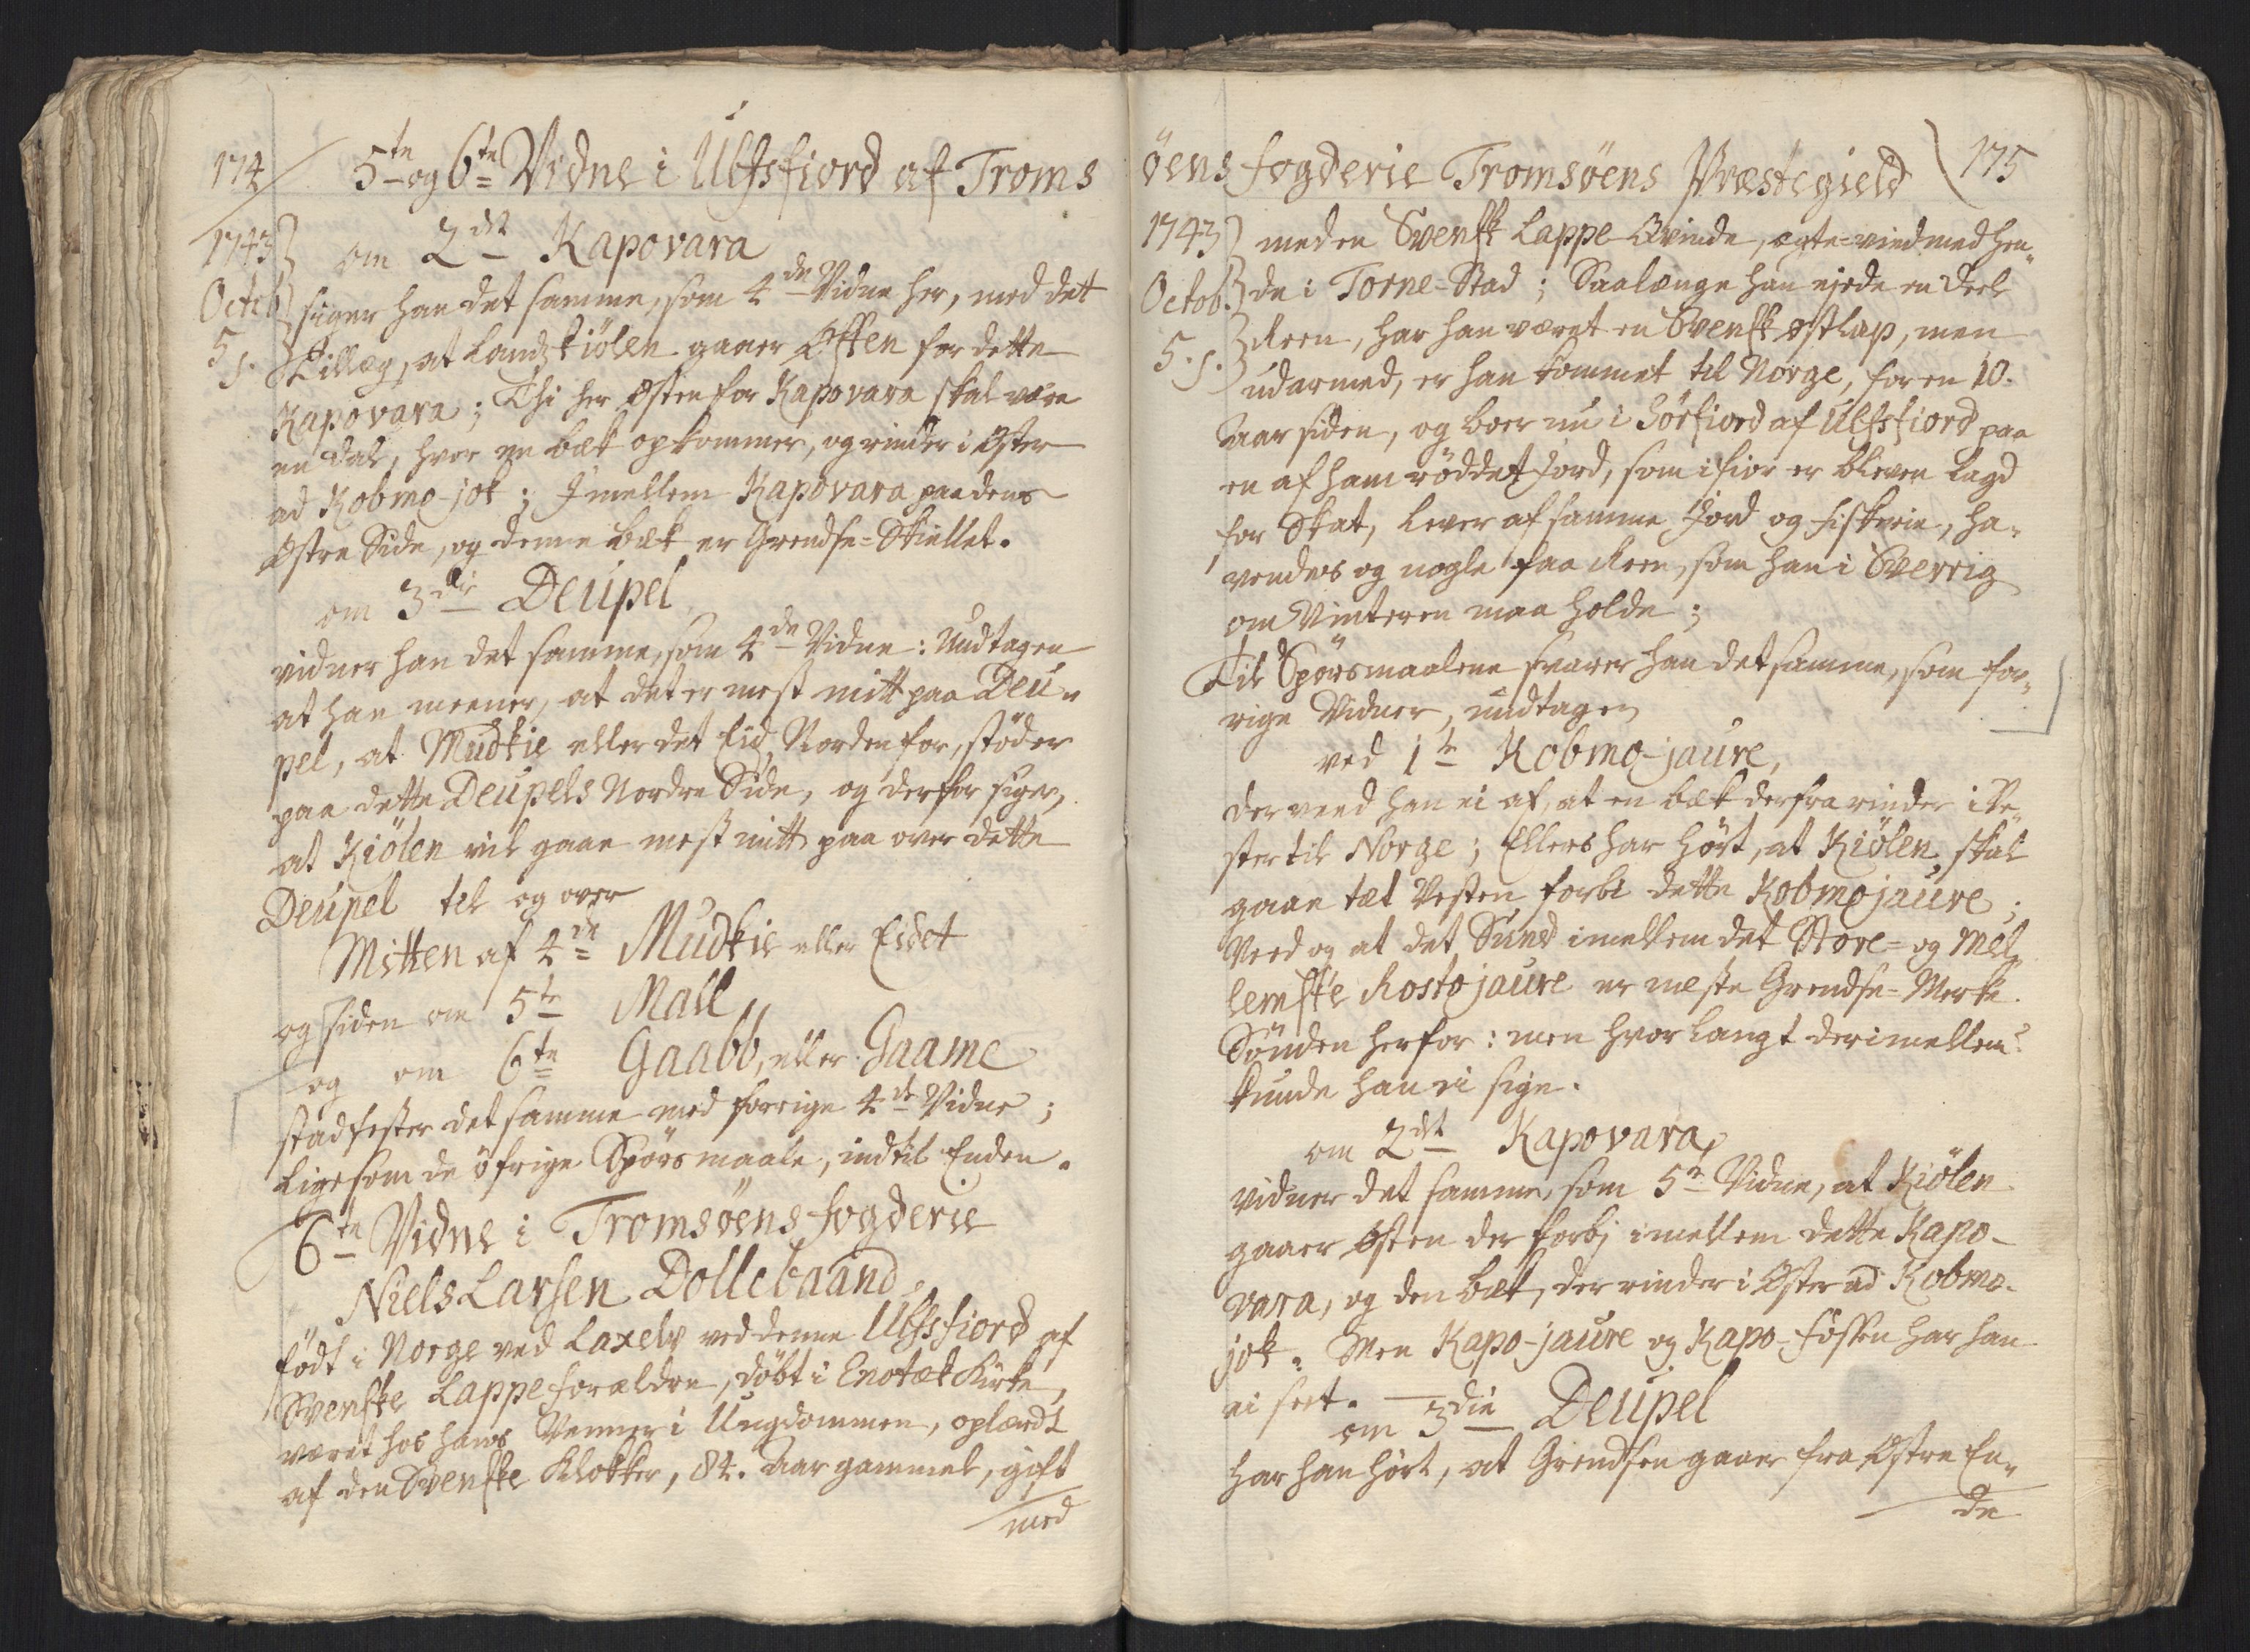 174
5te og 6te Vidne i Ulfsfiord af Troms
1743
Octob
5 s.
om 2det Kapovara
siger han det samme, som 4de Vidne her, med det
Tillæg, at Landz kiölen gaaer Östen for dette
Kapovara; Thi her östen for Kapovara skal være
en dal, hvor en bæk opkommer, og rinder i Öster
ad Kobmo-jok; Imellem Kapovara paa dens
Östre Side, og denne bæk er Grendse-Skiellet.
om 3die Deupel
vidner han det samme, som 4de Vidne: Undtagen
at han meener, at det er mest mitt paa Deu-
pel, at Mudkie eller det Eid Norden for, stöder
paa dette Deupels Nordre Side, og derfor siger,
at Kiölen vil gaae mest mitt paa over dette
Deupel til og over
Mitten af 4de Mudkie eller Eidet
og siden om 5te Mall
og om 6te Gaabb, eller Gaame
stadfester det samme med forrige 4de Vidne;
Ligesom de öfrige Spörsmaale, indtil Enden.
6te Vidne i Tromsöens fogderie
Niels Larsen Dollebaand,
födt i Norge ved Laxelv ved denne Ulfsfiord af
Svenske Lappe forældre, döbt i Enotæk Kirke,
været hos hans Venner i Ungdommen, oplærdt
af den Svenske Klokker, 84. Aar gammel, gift
med
öens fogderie Tromsöens Præstegield
175
1743
Octob.
5. s.
med en Svensk Lappe Qvinde, ægte-viedmed hen-
de i Torne-Stad; Saalænge han ejede en deel
Reen, har han været en Svensk östlap, men
udarmed, er han kommet til Norge, for en 10.
Aar siden, og boer nu i Sörfiord af Ulfsfiord paa
en af ham röddet Jord, som i fior er bleven lagd
for Skat, lever af samme Jord og fiskerie, ha-
vendes og nogle faa Reen, som han i Sverrig
om Vinteren maa holde;
Til Spörsmaalene svarer han det samme, som for-
rige Vidner, undtagen
ved 1te Kobmo-jaure,
der veed han ei af, at en bæk derfra rinder i Ve-
ster til Norge; Ellers har hört, at Kiölen skal
gaae tæt Vesten forbi dette Kobmojaure;
Veed og at det Sund imellem det Store- og Mel-
lemste Rostojaure er næste Grendse-Merke
Sönden herfor: men hvor langt derimellem
kunde han ei sige.
om 2det Kapovara,
vidner det samme, som 5te Vidne, at Kiölen
gaaer östen der forbj imellem dette Kapo-
vara, og den bæk, der rinder i Öster ad Kobmo-
jok. Men Kapo-jaure og Kapo-fossen har han
ei seet.
om 3die Deupel
har han hört, at Grendsen gaaer fra Östre En-
de